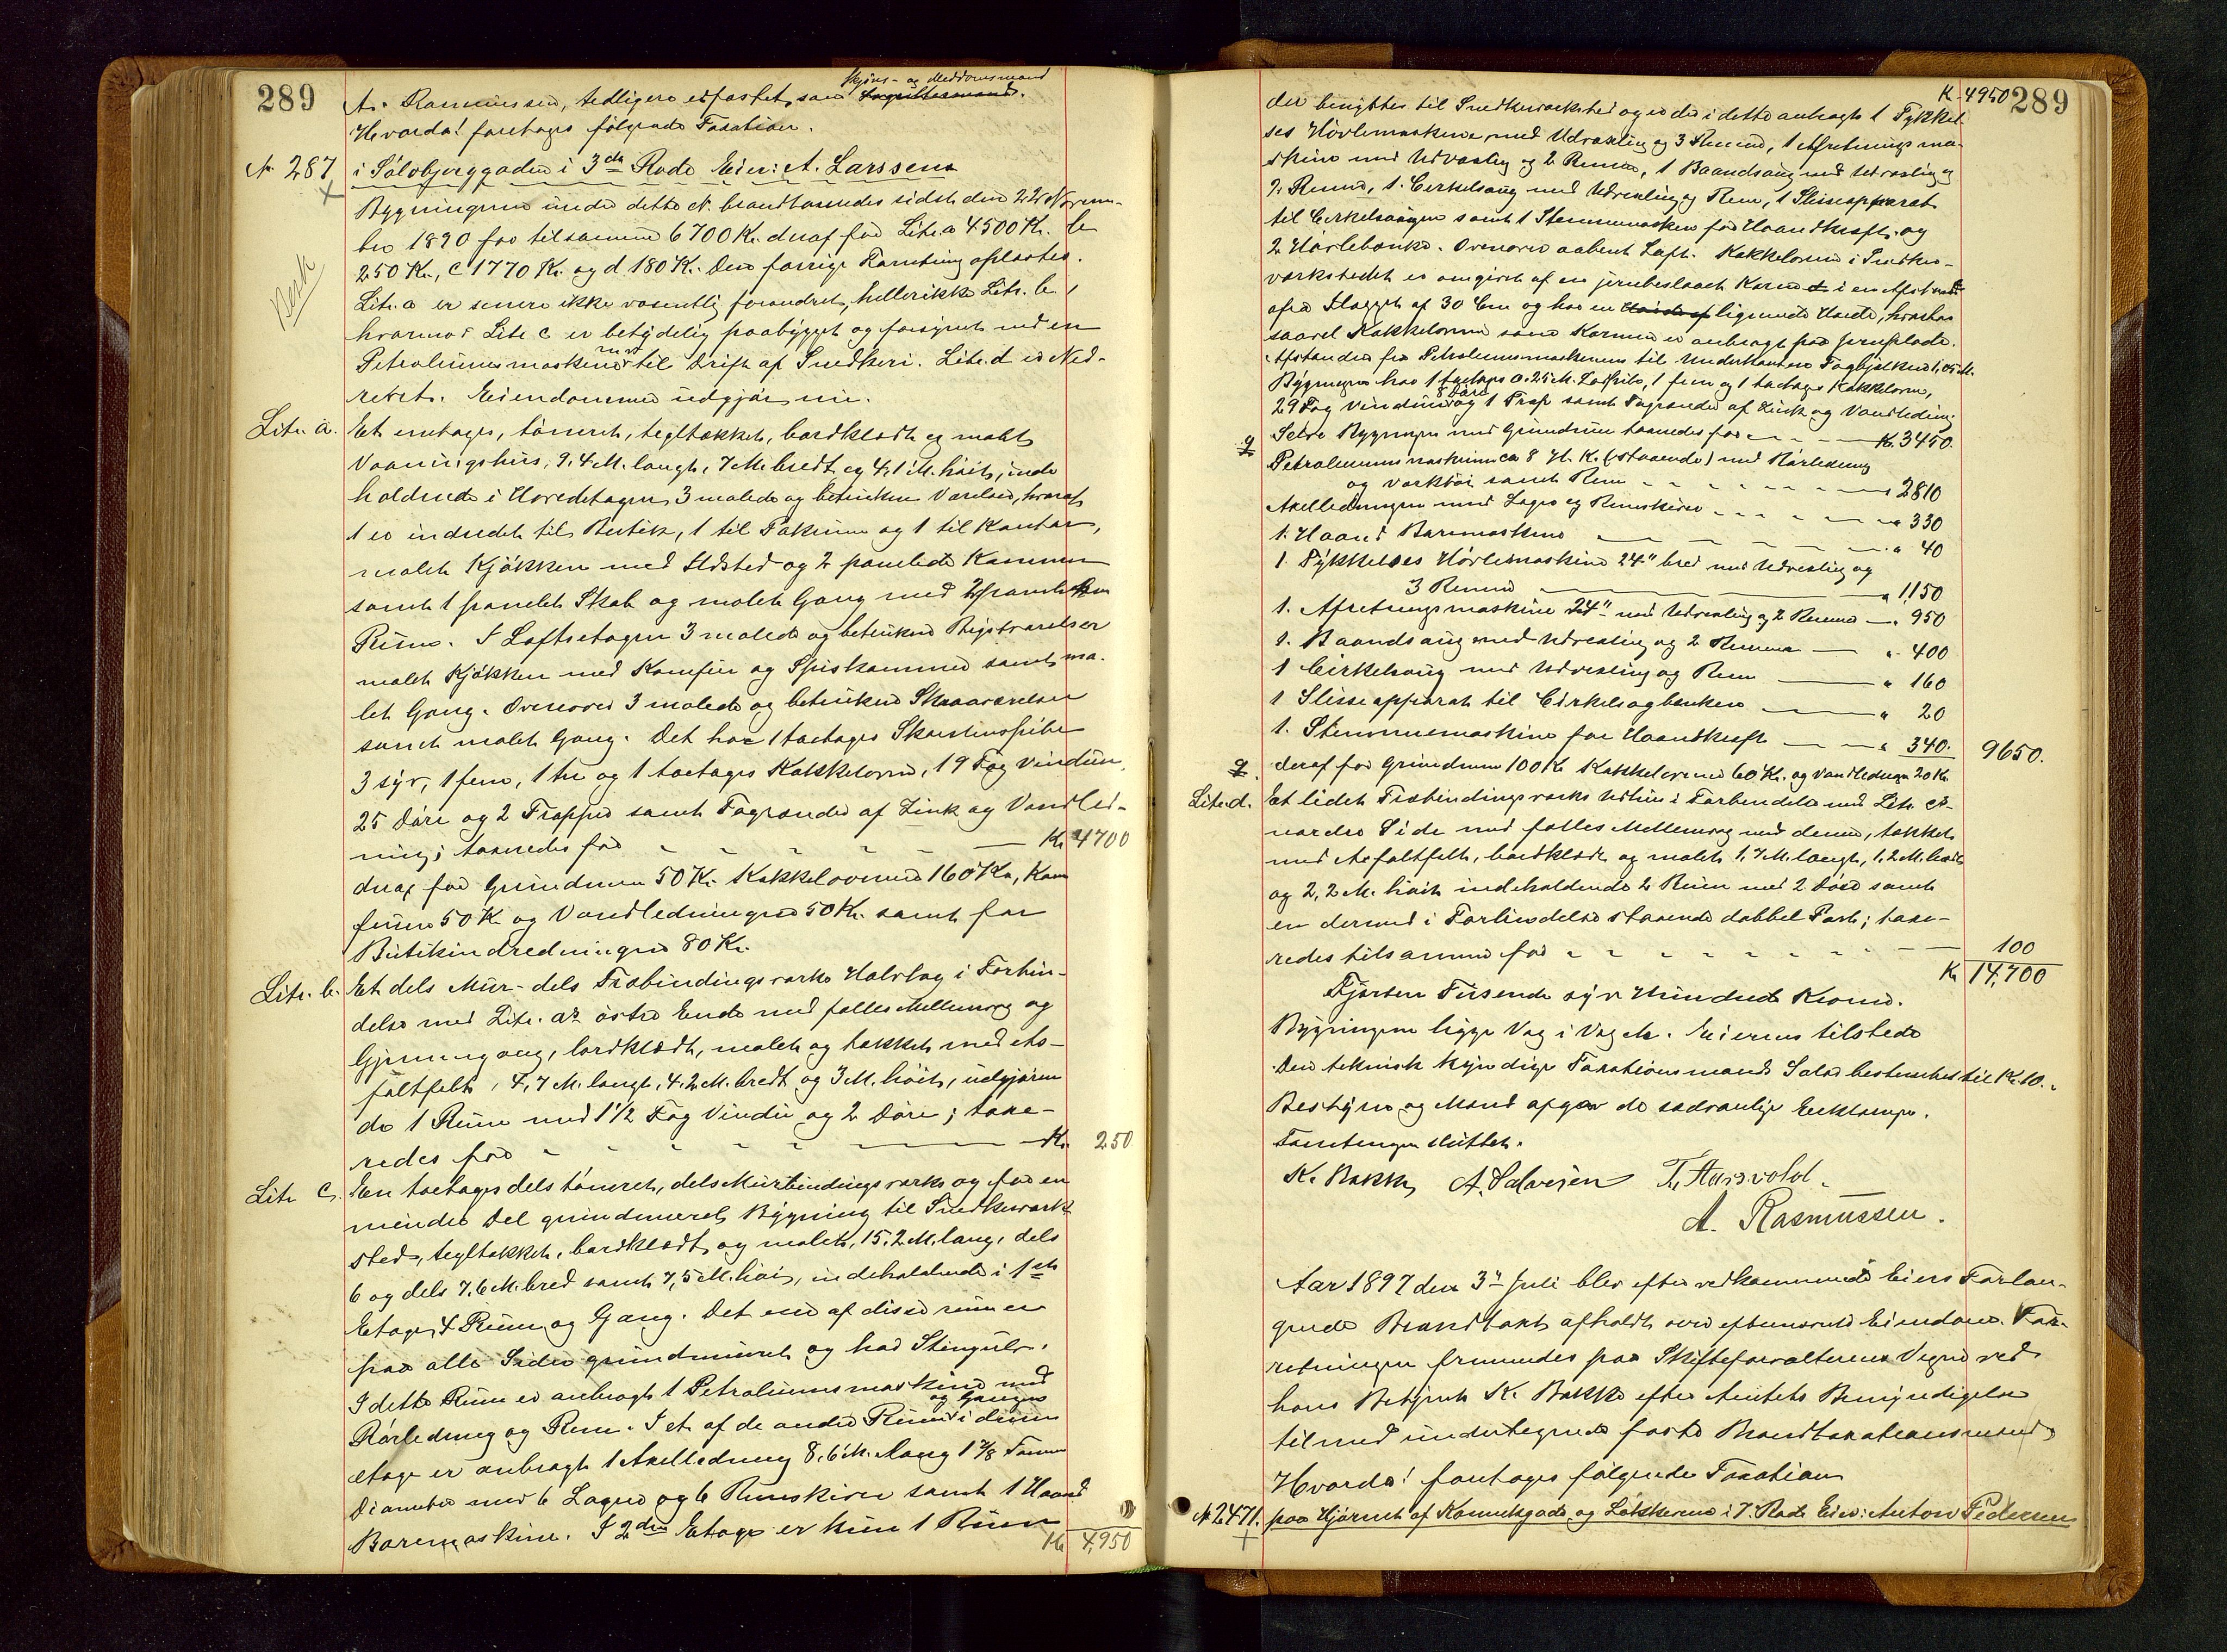 289
Skjöns- og Meddomsmand
A. Rasmussen, tidligere edfæstet som Lagrettesmand.
Hvorda! foretages følgende Taxation.
No 287 i Sölvbjerggaden i 3die Rode Eier: A. Larssen
Bygningerne under dette No. brandtaxeredes sidst den 22 Novem-
ber 1890 for tilsammen 6700 Kr. deraf for Litr. a 4500 Kr. b
250 Kr., c 1770 Kr. og d 180 Kr. Den forrige Ramting oplæstes.
Litr. a er senere ikke væsentlig forandret, heller ikke Litr. b,
hvorimod Litr. c er betydelig paabygget og forsynet med en
Petroleumsmaskine til Drift af Snedkeri. Litr. d er Ned-
revet. Eiendommen udgjør nu.
Litr. a. Et enetages, tömret, tegltækket, bordklædt og malet
Vaaningshus, 9,4 M. langt, 7 M. bredt og 4,1 M. höit, inde
holdende i Hovedetagen 3 malede og betrukne Værelser, hvoraf
1 er indredet til Butik, 1 til Pakrum og 1 til Kontor,
malet Kjökken med Ildsted og 2 panelede Kammer
samt 1 panelet Skab og malet Gang med 2 panelede
Rum. I Loftsetagen 3 malede og betrukne Bigsværelser
malet Kjökken med Komfur og Spiskammer samt ma-
let Gang. Ovenover 3 malede og betrukne Skraaværelser
samt malet Gang. Det har 1 toetages Skorstenspibe
3 syv, 1 fem, 1 tre og 1 toetages Kakkelovne, 19 Fag Vinduer,
25 Döre og 2 Trapper samt Tagrender af Zink og Vandled-
ning; taxeredes for Kr. 4700
deraf for Grundmuren 50 Kr. Kakkelovnene 160 Kr., Kom
furene 50 Kr. og Vandledningen 50 Kr. samt for
Butikindredningen 80 Kr.
Litr. b. Et dels Mur- dels Træbindingsværks Halvtag i Forbin-
delse med Litr. a's östre Ende med fælles Mellemvæg og
Gjennemgang, bordklædt, malet og tækket med As-
faltfelt, 4,7 M. langt, 4,2 M. bredt og 3 M. höit, udgjören
de 1 Rum med 1 1/2 Fag Vindu og 2 Döre; taxe-
redes for Kr. 250
Litr c. En toetages dels tömret, dels Murbindingsværks og for en
mindre Del grundmuret Bygning til Snedkerværk
sted, tegltækket, bordklædt og malet, 15,2 M. lang, dels
6 og dels 7,6 M. bred samt 7,5 M. höi, indeholdende i 1ste
Etage 4 Rum og Gang. Det ene af disse rum er
paa alle Sider grundmuret og har Stengulv.
I dette Rum er anbragt 1 Petroleumsmaskine med
og Gangen
Rörledning og Rem. I et af de andre Rum i denne
etage er anbragt 1 Axelledning 8,6 M. lang 1 7/8 Tomme
Diameter med 6 Lagre og 6 Remskiver samt 1 Haand
Boremaskine. I 2den Etage er kun 1 Rum
Kr 4,950
K. 4950 289
der benyttes til Snedkerværksted og er der i dette anbragt 1 Tykkel-
ses Hövlemaskine med Udvexling og 3 Remme, 1 Afretningsma-
skine med Udvexling og 2 Remme, 1 Baandsaug med Udvexling og
2 Remme, 1. Cirkelsaug med Udvexling og Rem, 1 Slisseapparat
til Cirkelsaugen samt 1 Stemmemaskine for Haandkraft og
2 Hövlebænke. Ovenover aabent Loft. Kakkelovnen i Snedker-
værkstedet er omgivet af en jernbeslaaet Karm i en Afstand
afra Flagget af 30 Cm og har en lignende Hætte, hvorhos
saavel Kakkelovnen som Karmen er anbragt paa Jernplade.
Afstanden fra Petroleumsmaskinens til Underkanten Tagbjelken 1,05 M.
Bygningen har 1 toetages a. 25 M. Lafpibe, 1 fem og 1 toetages Kakkelovn,
8 Döre
29 Fag Vinduer og 1 Trap samt Tagrender af Zink og Vandledning.
Selve Bygningen med Grundmur taxeredes for Kr. 3450.
Petroleumsmaskinen ca 8 H. K. (staaende) med Rörledning
og værktöi samt Rem " 2810
Axelledningen med Lagre og Remskiver " 330
1. Haand Boremaskine " 40
1. Tykkelses Hövlemaskine 24" bred med Udvexling og
3 Remme " 1150
1. Afretningsmaskine 24" med Udvexling og 2 Remme " 950
1. Baandsaug med Udvexling og 2 Remme " 400
1 Cirkelsaug med Udvexling og Rem " 160
1 Slisseapparat til Cirkelsagbænken " 20
1. Stemmemaskine for Haandkraft " 340. 9650.
deraf for Grundmur 100 Kr Kakkelovnene 60 Kr. og Vandledningen 20 Kr
Litr. d. Et lidet Træbindingsværks Udhus i Forbindelse med Litr. c's
nordre Side med fælles Mellemvæg med denne, tækket
med Asfaltfelt, bordklædt og malet 1,7 M. langt, 1,2 M. bredt
og 2,2 M. höit indeholdende 2 Rum med 2 Döre samt
en dermed i Forbindelse staaende dobbel Port; taxe-
redes tilsammen for 100
Kr 14,700
Fjorten Tusende syv Hundrede Kroner.
Bygningerne ligge Væg i Væg etc. Eieren tilstede
Den teknisk kyndige Taxationsmands Salær bestemtes til Kr. 10.
Bestyrer og Mænd afgav de sædvanlige Erklæringer.
Ramtingen sluttet.
K. Bakke A. Salvesen T. Aarsvold.
A. Rasmussen.
Aar 1897 den 3die Juli blev efter vedkommende Eiers Forlan-
gende Brandtaxt afholdt over eftermeldte Eiendom. For-
retningen fremmedes paa Skifteforvalterens Vegne ved
hans Betjent K. Bakke efter Amtets Bemyndigelse
tilmed undertegnede faste Brandtaxationsmænd
Hvorda! foretages følgende Taxation
No 2471. paa Hjørnet af Kannikgade og Lökkeveien i 7. Rode Eier: Anton Pedersen